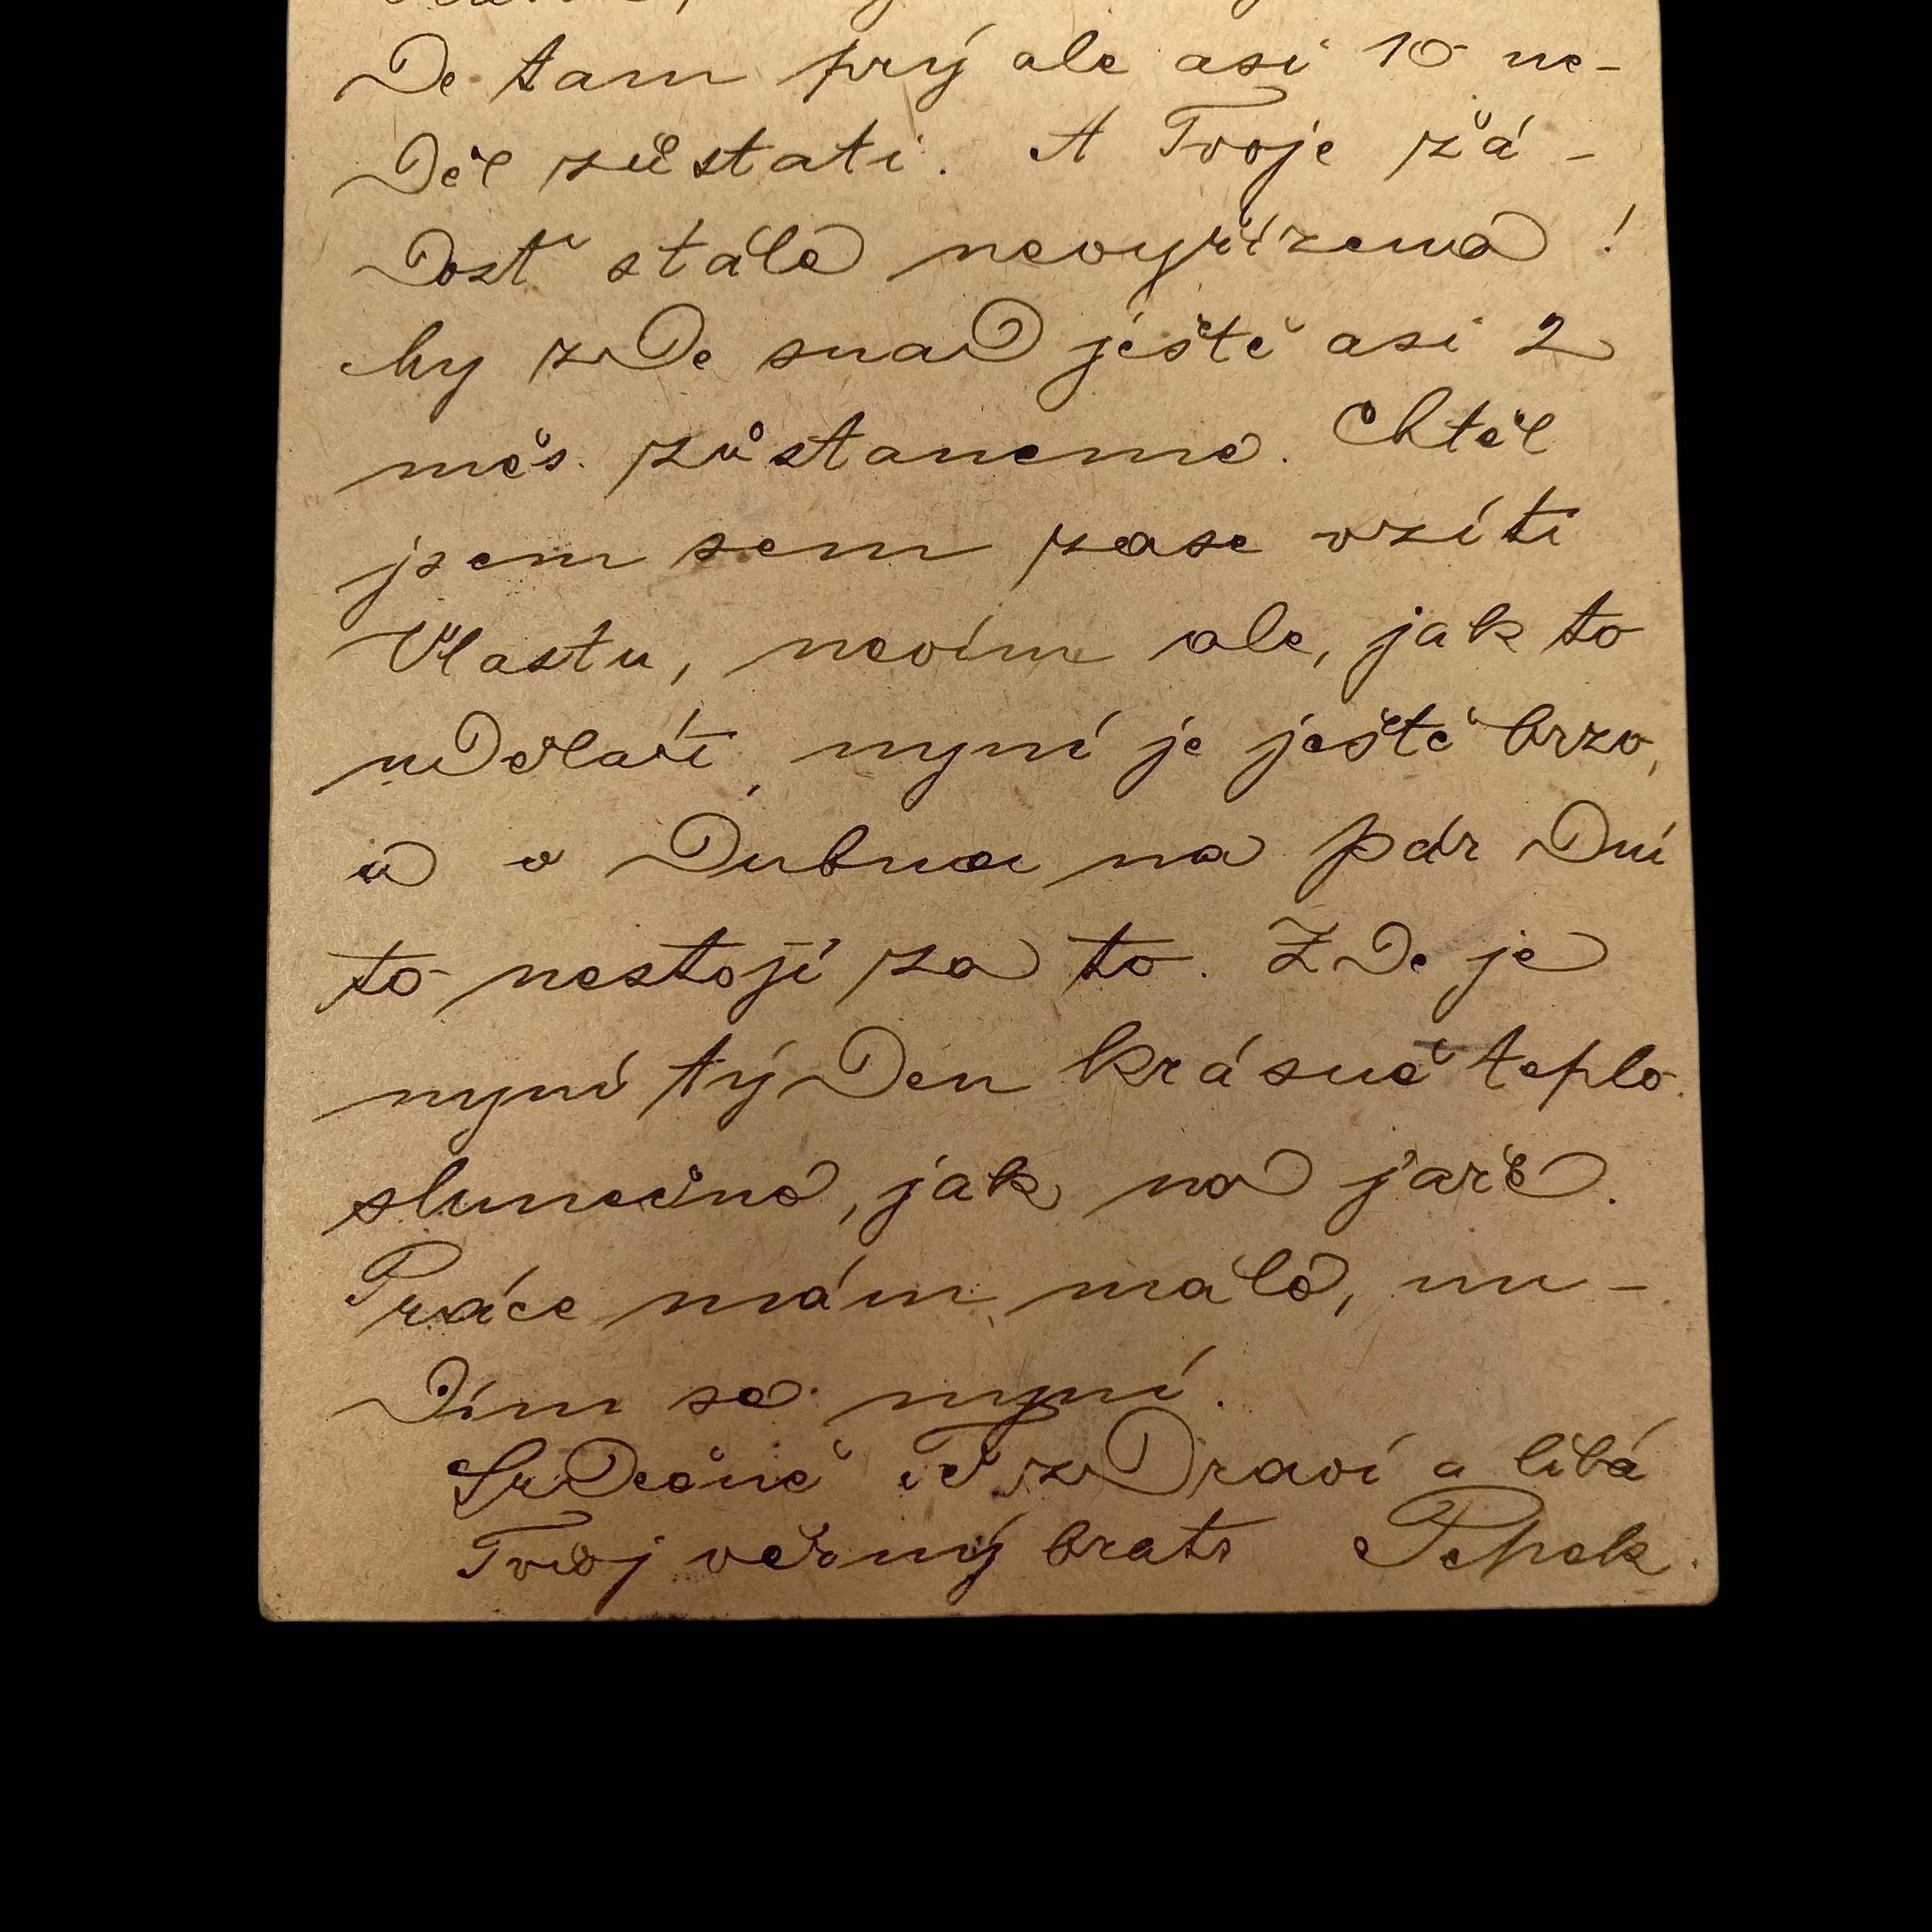 de tam prý ale asi 10 ne-
děl zůstati. A Tvoje žá-
dosť stále nevyřízená!
My zde snad ještě asi 2
měs. zůstaneme. Chtěl
jsem sem zase vzíti
Vlastu, nevím ale, jak to
udělati, nyní je ještě brzo,
a v Dubnu na pár dní
to nestojí za to. Zde je
nyní týden krásně teplo
slunečno, jak na jaře.
Práce mám málo, nu-
dím se nyní.
Srdečně Tě zdraví a líbá
Tvůj věrný bratr Pepek.